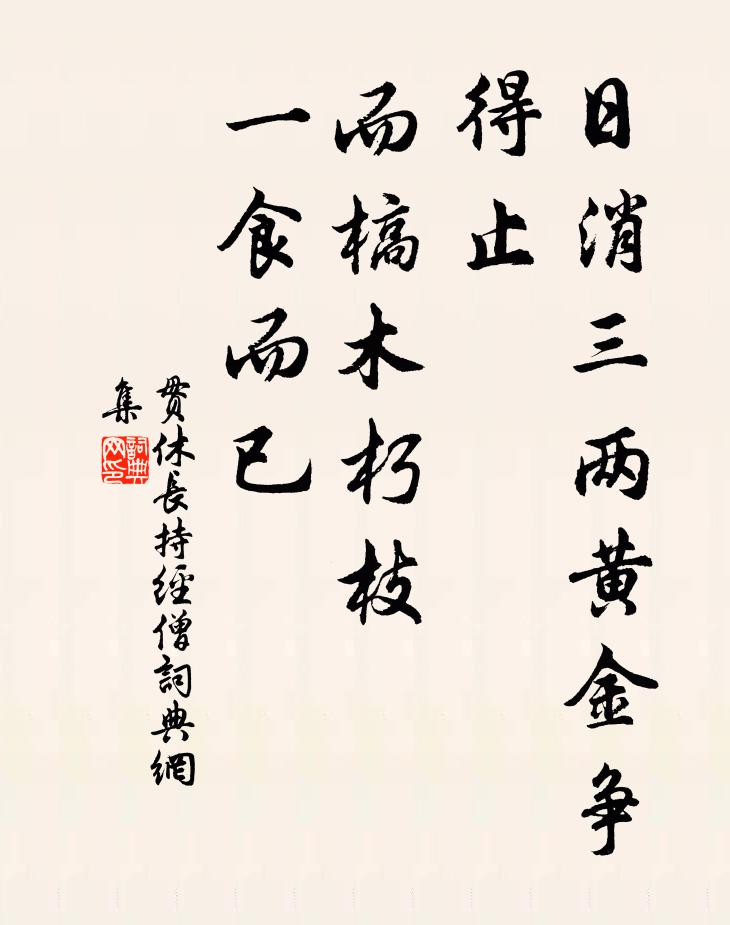 日消三两黄金争
得止
而槁木朽枝
一食而已
贯休長持經僧詞典網
集
詞典
网印